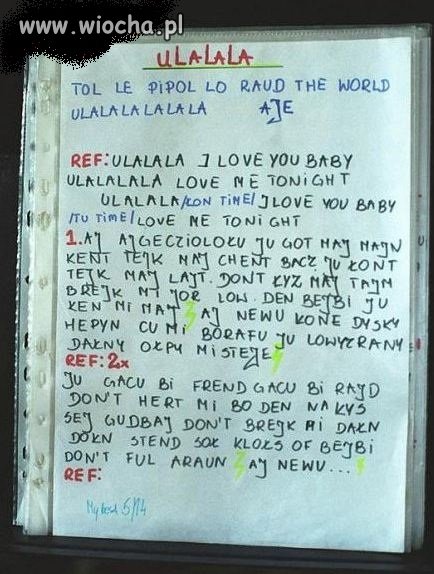 www.wiocha.pl
ULALALA
TOL LE PIPOL LO RAUD THE WORLD
ULALALALALALA AJE
REF: ULALALA I LOVE YOU BABY
ULALALALA LOVE ME TONIGHT
ULALALA/KON TIME/ I LOVE YOU BABY
/TU TIME/ LOVE ME TONIGHT
1. AJ AJGECZIOLOKU JU GOT MAJ MAJN
KENT TEJK MAJ CHENT BACZ. JU KONT
TEJK MAJ LAJT. DONT KYZ MAJ TAJM
BREJK MI JOR LOW. DEN BEJBI JU
KEN MI MAJ AJ NEWU KONE DYSKY
HEPYN CU MI BORAFU JU LOWYZRANY
DAŁNY OKPU MISTEJE
REF: 2x
JU GACU BI FREND GACU BI RAJD
DON'T HERT MI BO DEN NA KYS
SEJ GUDBAJ DON'T BREJK MI DAŁN
DOŁN STEND SOK KLOKS OF BEJBI
DON'T FUL ARAUN AJ NEWU...
REF:
5/14